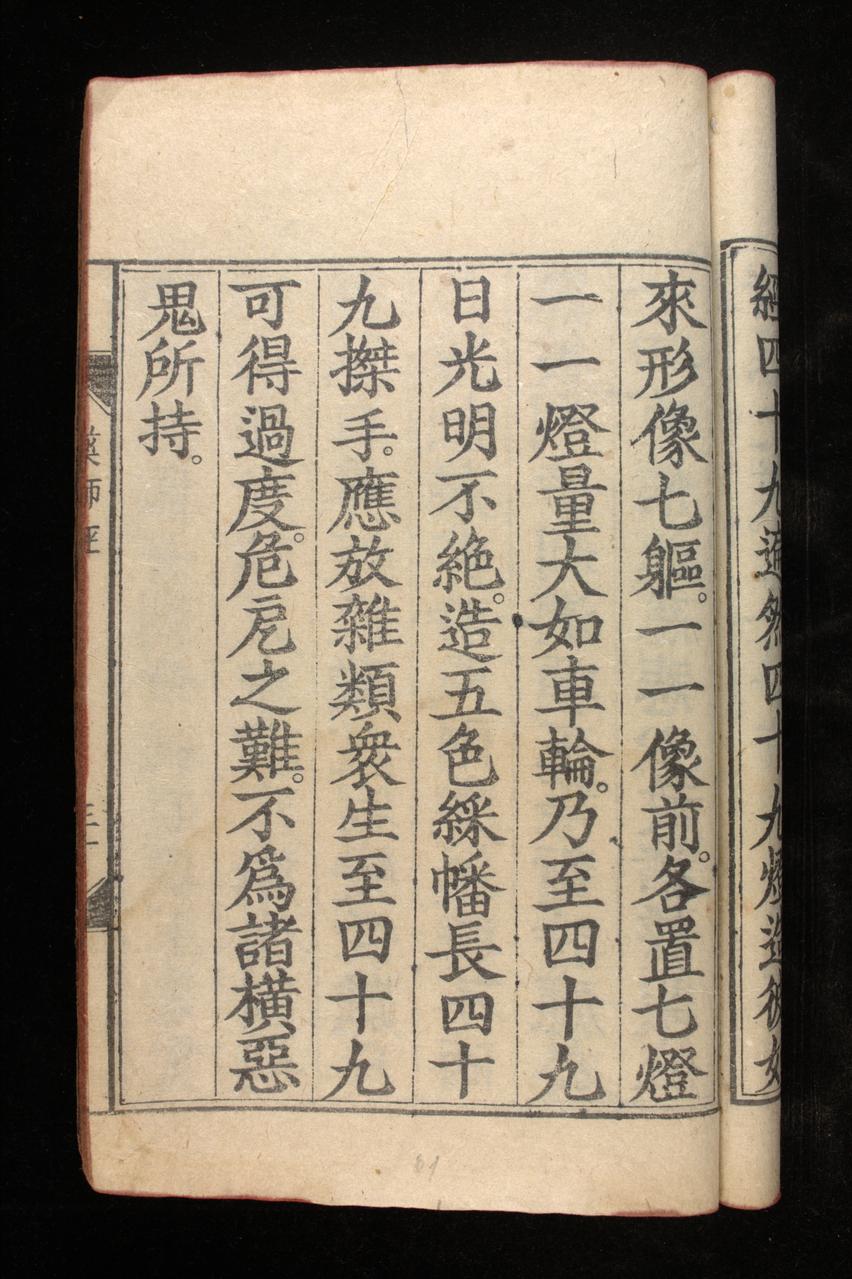 經四十九遍然四十九燈造彼如
來形像七軀。一一像前。各置七燈
一一燈量大如車輪。乃至四十九
日光明不絶。造五色綵幡長四十
九搩手。應放雜類衆生至四十九
可得過度。危戹之難。不爲諸橫惡
鬼所持。
藥師經
三十